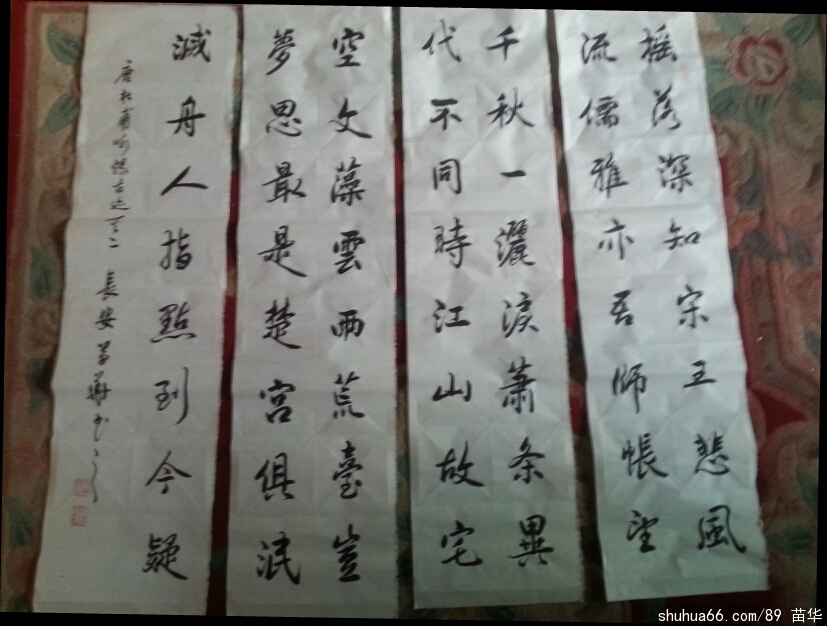 摇落深知宋玉悲風
流儒雅亦吾師悵望
千秋一灑淚蕭条異
代不同時江山故宅
空文藻雲雨荒臺豈
夢思最是楚宮俱泯
滅舟人指點到今疑
唐杜甫咏懷古迹其二 長安苗華书
shuhua66.com/89 苗华